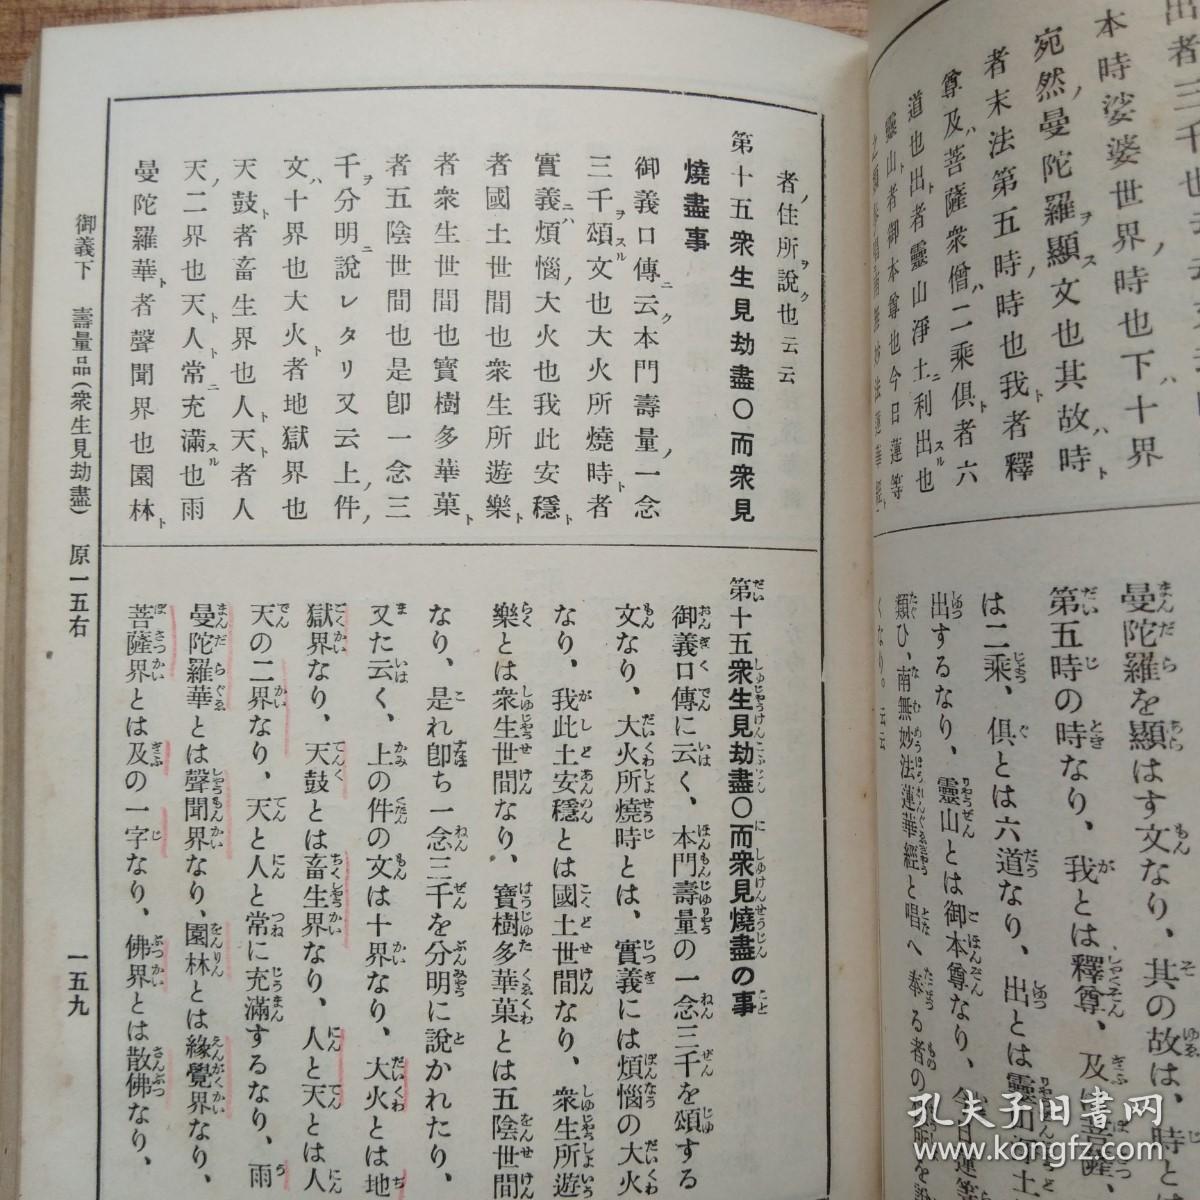 出者三千也
本時娑婆世界ノ時也下ハ十界
宛然ノ曼陀羅ヲ顯ス文也其故ハ時ト
者末法第五時ノ時也我ト者釋
尊及ハ菩薩衆僧ハ二乘俱ト者六
道也出ト者靈山淨土ニ利出スル也
靈山ト者御本尊也今日蓮等
者ノ住所ヲ說ク也云云
第十五衆生見劫盡〇而衆見
燒盡事
御義口傳ニ云ク本門壽量ノ一念
三千ヲ頌スル文也大火所燒時ト者
實義ニハ煩惱ノ大火也我此安穩ト
者國土世間也衆生所遊樂ト
者衆生世間也寶樹多華菓ト
者五陰世間也是卽一念三
千ヲ分明ニ說レタリ又云上ノ件ノ
文ハ十界也大火ト者地獄界也
天鼓ト者畜生界也人ト天ト者人
天ノ二界也天ト人ト常ニ充滿スル也雨
曼陀羅華ト者聲聞界也園林ト
曼陀羅を顯はす文なり、其の故は、時と
第五時の時なり、我とは釋尊、及は菩薩、
は二乘、俱とは六道なり、出とは靈山淨土
出するなり、靈山とは御本尊なり、今日蓮等
類ひ、南無妙法蓮華經と唱へ奉る者の住所を說
くなり。云云
第十五衆生見劫盡〇而衆見燒盡の事
御義口傳に云く、本門壽量の一念三千を頌する
文なり、大火所燒時とは、實義には煩惱の大火
なり、我此土安穩とは國土世間なり、衆生所遊
樂とは衆生世間なり、寶樹多華菓とは五陰世間
なり、是れ卽ち一念三千を分明に說かれたり、
又た云く、上の件の文は十界なり、大火とは地
獄界なり、天鼓とは畜生界なり、人と天とは人
天の二界なり、天と人と常に充滿するなり、雨
曼陀羅華とは聲聞界なり、園林とは緣覺界なり、
菩薩界とは及の一字なり、佛界とは散佛なり、
御義下 壽量品(衆生見劫盡) 原一五右 一五九
孔夫子旧書网
www.kongfz.com